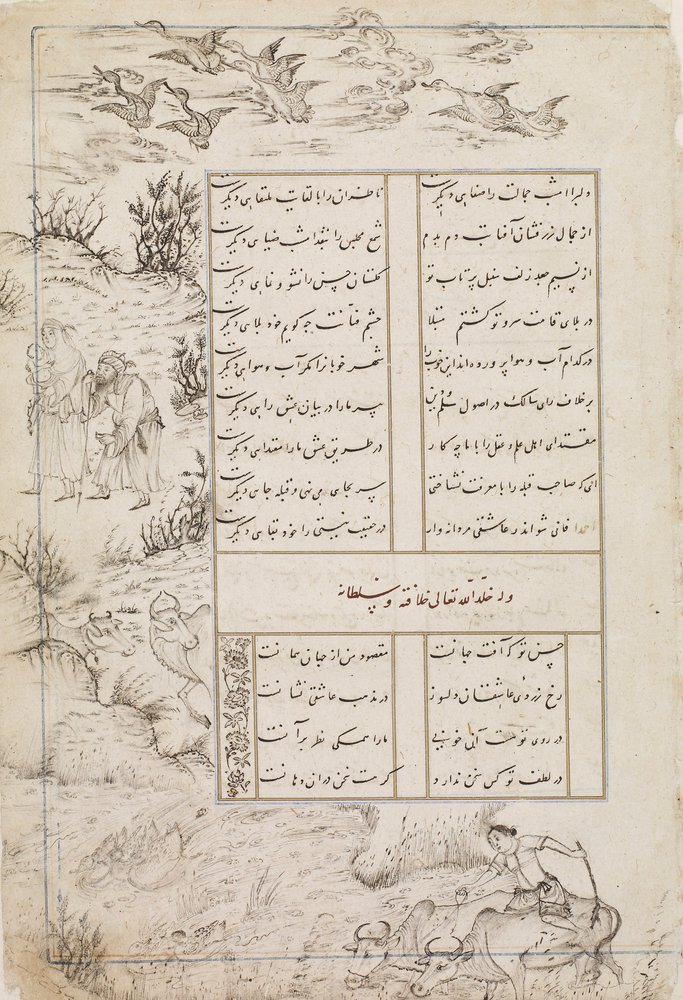 دلبرا امشب جمالت را صفایی دیگرست ناظران را با لقایت ملتقایی دیگرست
از جمال زرفشان آفتاب دم بدم شمع مجلس را ضیای دیگرست
از نسیم جعد زلف سنبل پرتاب تو گلستان حسن را نشو و نمای دیگرست
در بلای قامت سرو تو گشتم مبتلا چشم فتانت چه گویم خود بلای دیگرست
در کدام آب و هوا پرورده اند این خوب را شهر خوبانرا مگر آب و هوای دیگرست
بر خلاف رای سالک در اصول علم و دین پیر ما را در بیان عشق رایی دیگرست
مقتدای اهل علم و عقل را با ما چه کار در طریق عشق ما را مقتدای دیگرست
که صاحب قبله را با معرفت نشناختی سر بجای می نهی و قبله جای دیگرست
احمدا فانی شو اندر عاشقی مردانه وار در حقیقت نیستی را خود بقای دیگرست
وله خلد الله تعالی خلافته و سلطانه
حسن تو که آفت جهانست مقصود من از جهان همانست
رخ زردی عاشقان دلسوز در مذهب عاشقی نشانست
در روی تو هست آن خوبی ما را همگی نظر بر آنست
در لطف تو کس سخن ندارد گر هست سخن در ان دهانست